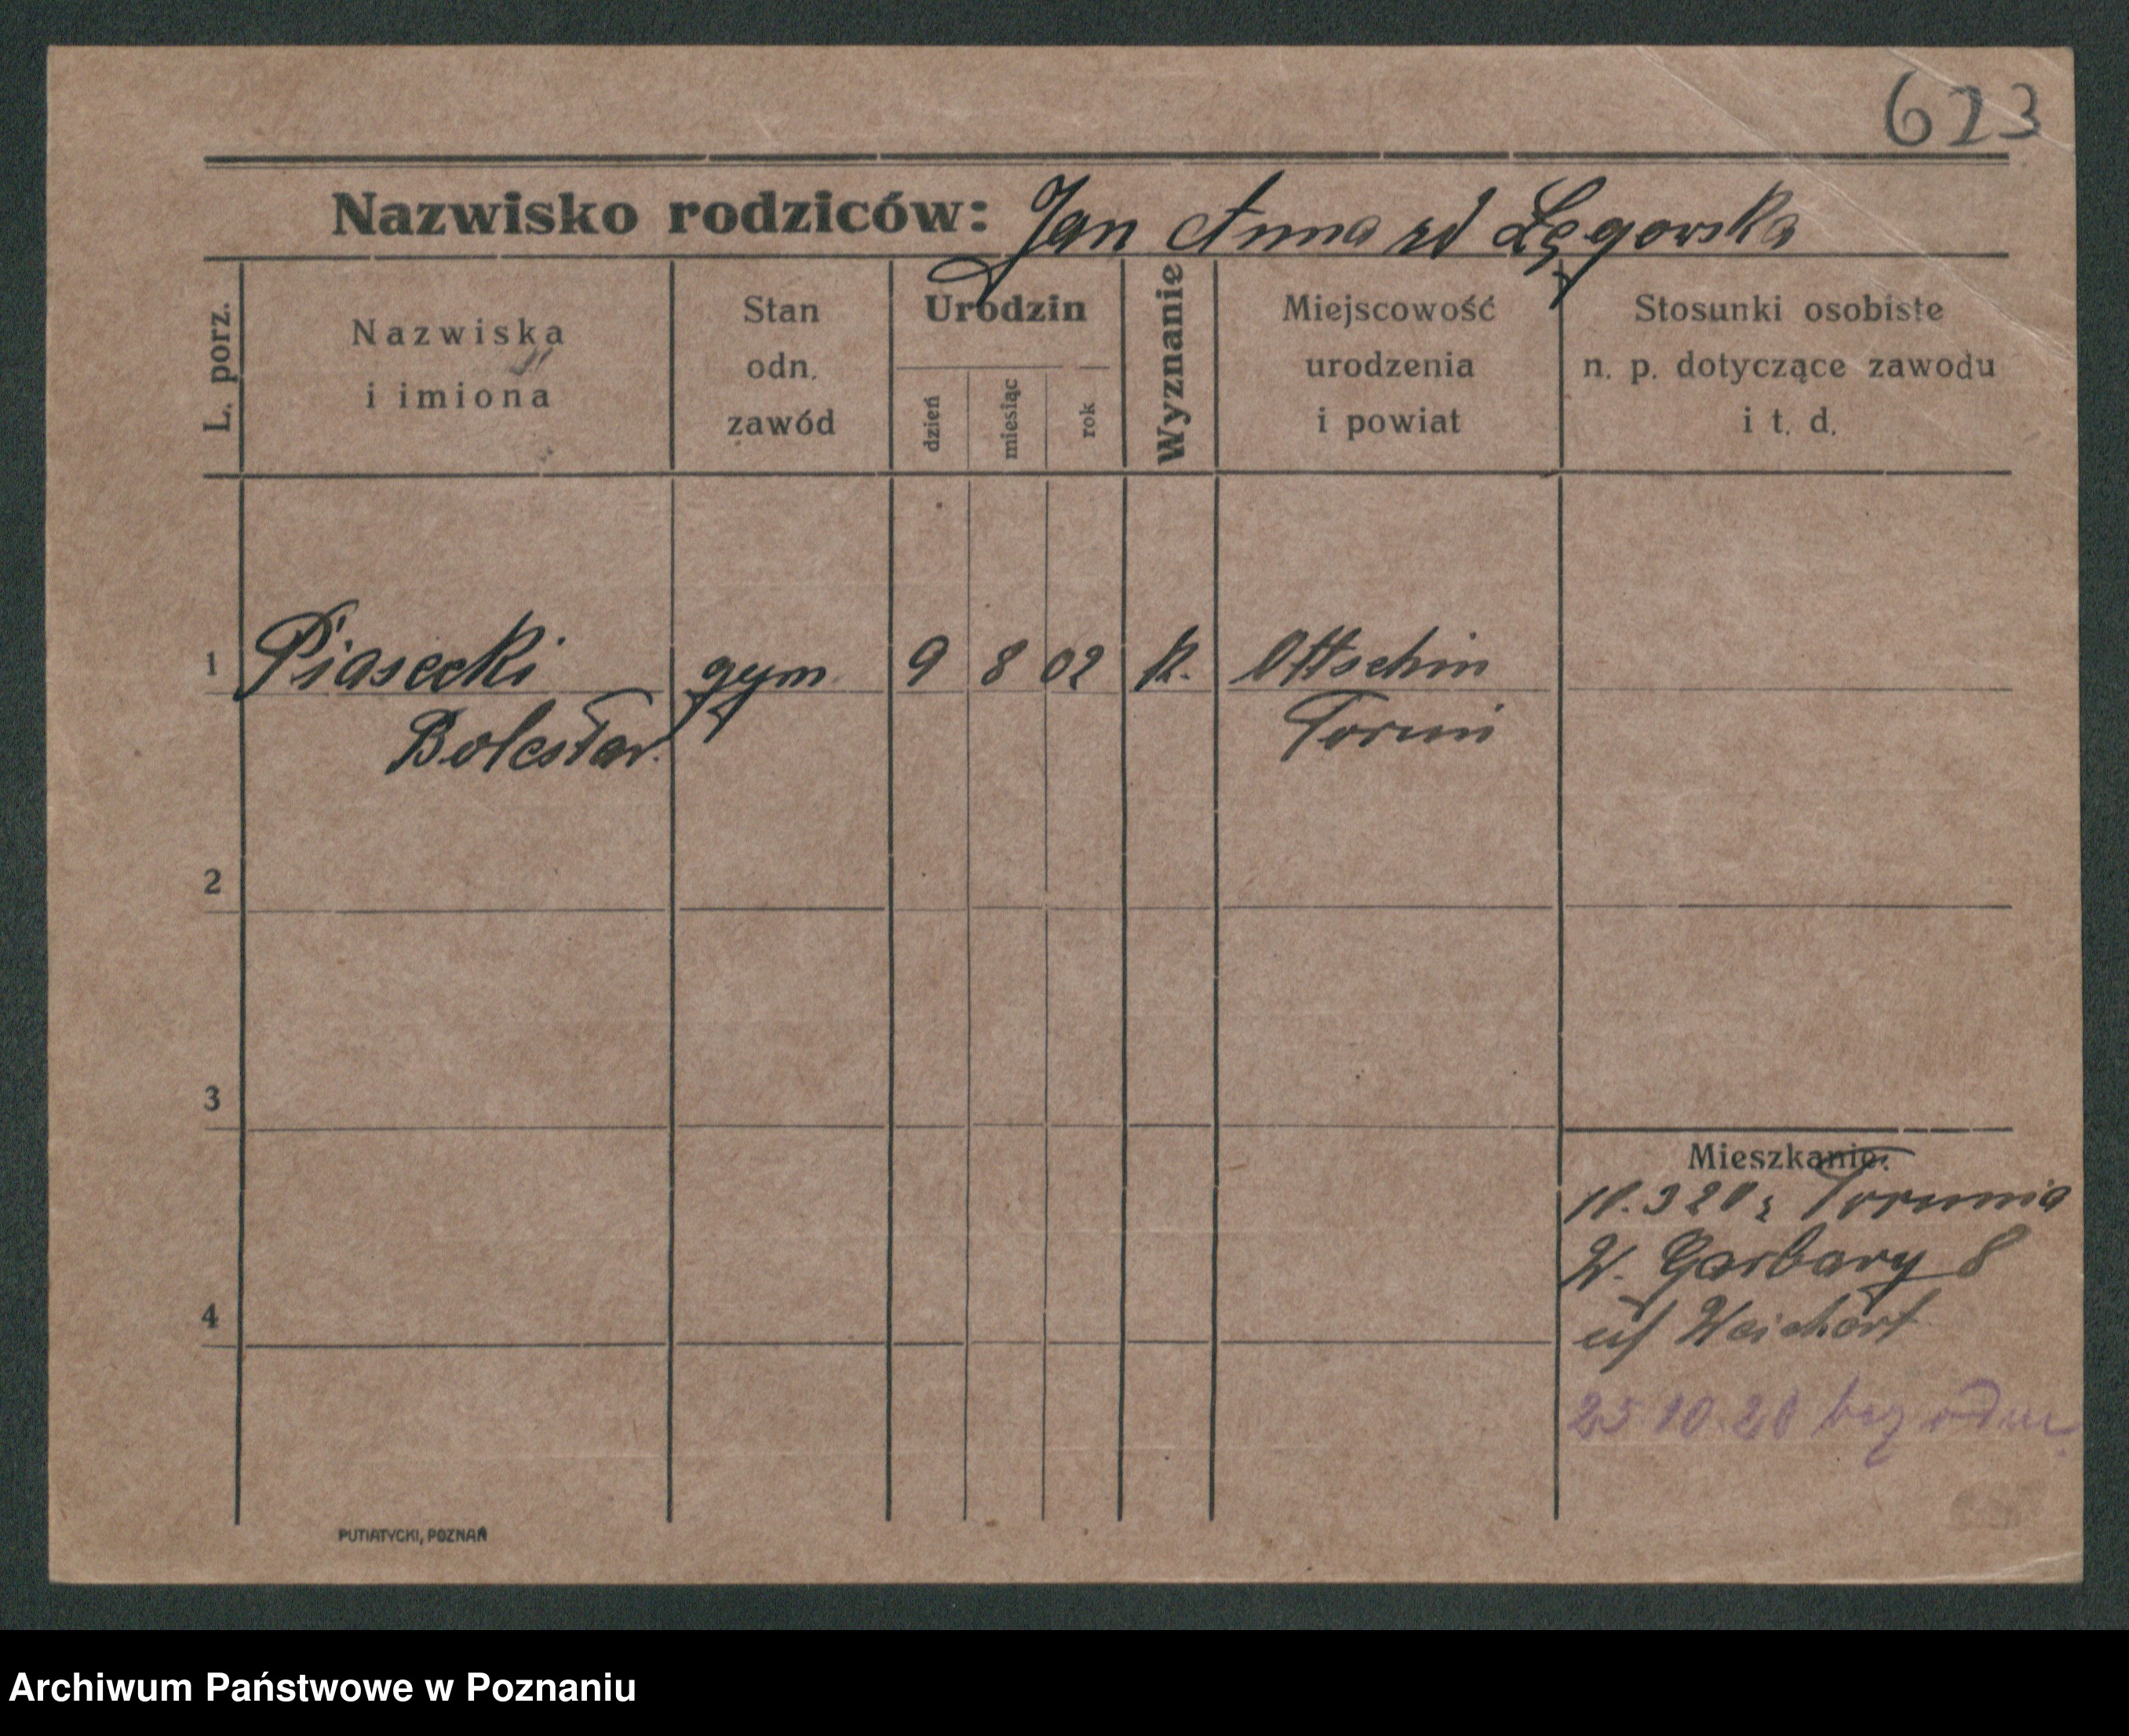 623
Nazwisko rodziców: Jan Anna rd Łęgowska
L. porz.
Nazwiska
i imiona
Stan
odn.
zawód
Urodzin
dzień
miesiąc
rok
Wyznanie
Miejscowość
urodzenia
i powiat
Stosunki osobiste
n. p. dotyczące zawodu
i t. d.
1 Piasecki gym. 9 8 02 k. Ottschin
Bolesław. Toruń
2
3
Mieszkanie:
3 20 z Torunia
W. Garbary 8
4
u/ Weichert
25 10.20 bez odm.
PUTIATYCKI, POZNAŃ
Archiwum Państwowe w Poznaniu